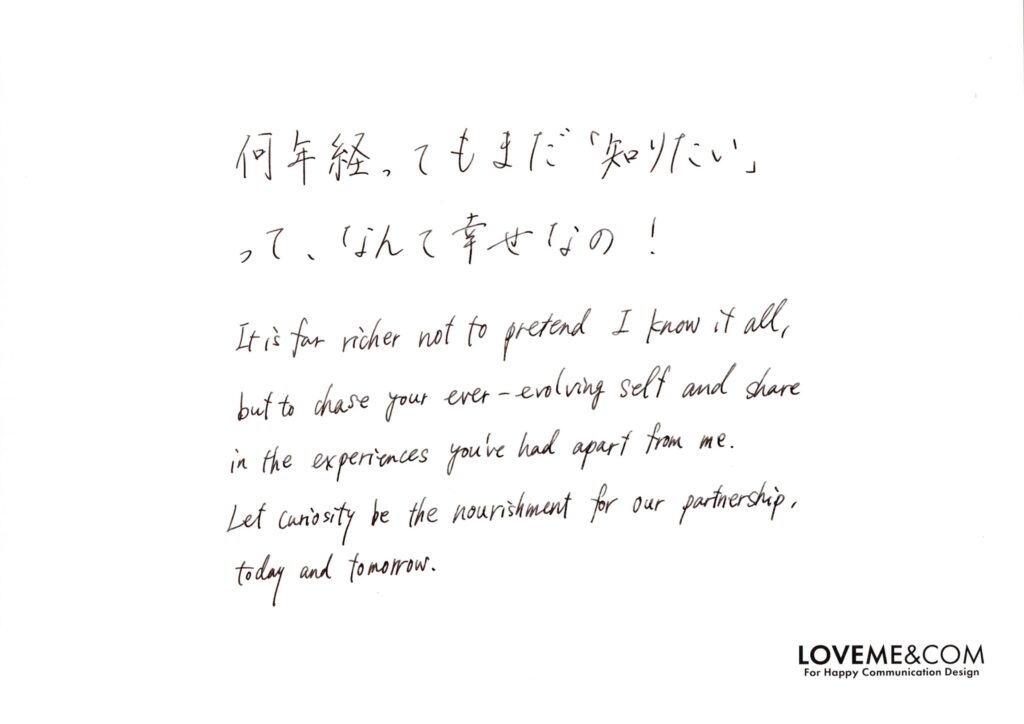 何年経ってもまだ「知りたい」
って、なんて幸せなの！
It is far richer not to pretend I know it all,
but to chase your ever-evolving self and share
in the experiences you've had apart from me.
Let curiosity be the nourishment for our partnership,
today and tomorrow.
LOVEME&COM
For Happy Communication Design